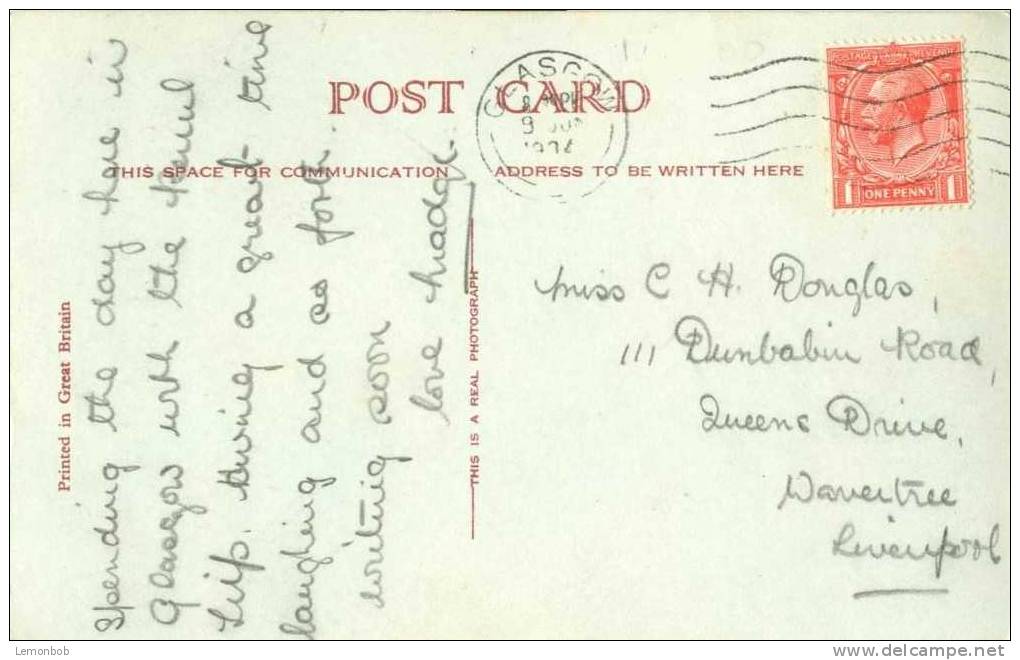 POST CARD
THIS SPACE FOR COMMUNICATION
ADDRESS TO BE WRITTEN HERE
GLASGOW
9 JUN
POSTAGE REVENUE
1 ONE PENNY 1
Printed in Great Britain
THIS IS A REAL PHOTOGRAPH
Spending the day here in
Glasgow with the
having a great time
laughing and so forth.
writing soon
love Madge.
Miss C H. Douglas,
111 Dunbabin Road,
Queens Drive,
Wavertree
Liverpool
Lemonbob
delcampe.net